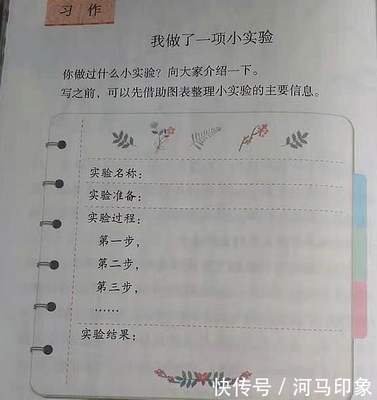 习 作
我做了一项小实验
你做过什么小实验？向大家介绍一下。
写之前，可以先借助图表整理小实验的主要信息。
实验名称：
实验准备：
实验过程：
第一步，
第二步，
第三步，
……
实验结果：
快传号／河马印象